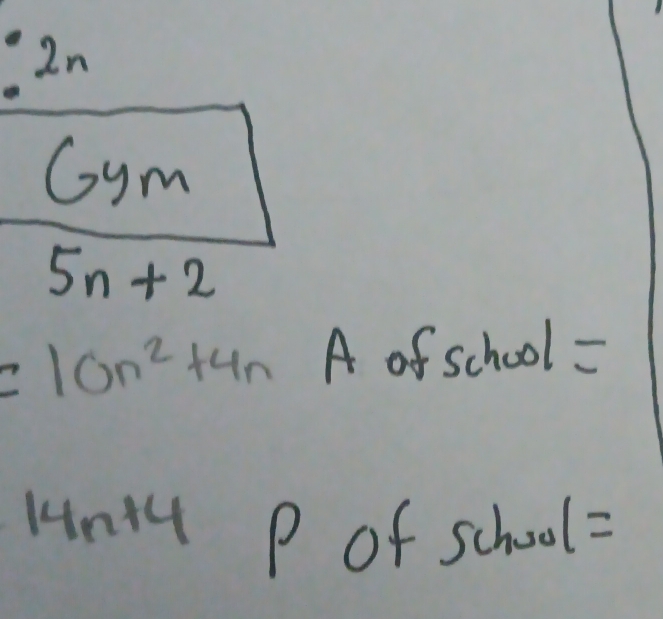 : 2n
Gym
5n + 2
= 10n² + 4n A of school =
14n+4 P of school =